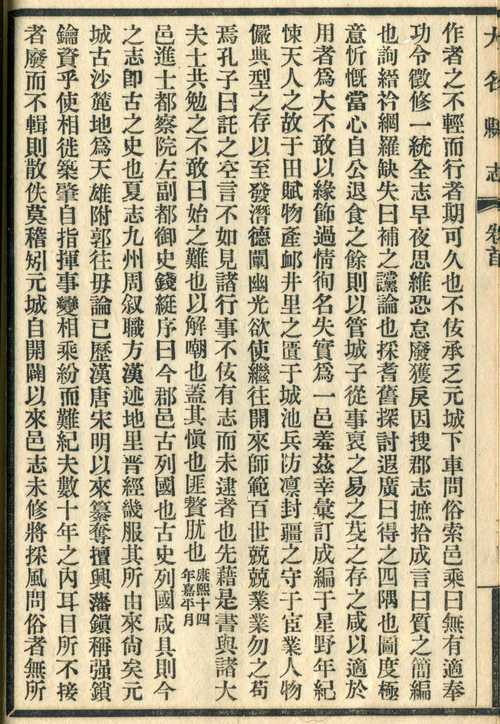 大名縣志 卷首
作者之不輕而行者期可久也不佞承乏元城下車問俗索邑乘曰無有適奉
功令徵修一統全志早夜思維恐怠廢獲戾因搜郡志摭拾成言曰質之簡編
也詢縉衿綱羅缺失曰補之讜論也採耆舊探討遐廣曰得之四隅也圖度極
意忻慨當心自公退食之餘則以管城子從事裒之易之芟之存之咸以適於
用者爲大不敢以緣飾過情徇名失實爲一邑羞茲幸彙訂成編于星野年紀
悚天人之故于田賦物產卹井里之匱于城池兵防凛封疆之守于宦業人物
儼典型之存以至發潛德闡幽光欲使繼往開來師範百世兢兢業業勿之苟
焉孔子曰託之空言不如見諸行事不佞有志而未逮者也先藉是書與諸大
夫士共勉之不敢曰始之難也以解嘲也蓋其愼也匪贅肬也
康熙十四
年嘉平月
邑進士都察院左副都御史錢綎序曰今郡邑古列國也古史列國咸具則今
之志卽古之史也夏志九州周叙職方漢述地里晋經畿服其所由來尙矣元
城古沙麓地爲天雄附郭往毋論已歷漢唐宋明以來簒奪擅興藩鎭稱强鎖
鑰資乎使相徙築肇自指揮事變相乘紛而難紀夫數十年之內耳目所不接
者廢而不輯則散佚莫稽矧元城自開闢以來邑志未修將採風問俗者無所